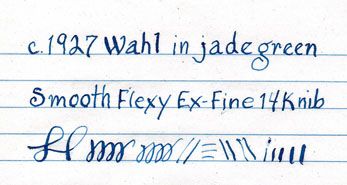 c.1927 Wahl in jade green
Smooth Flexy Ex-Fine 14K nib